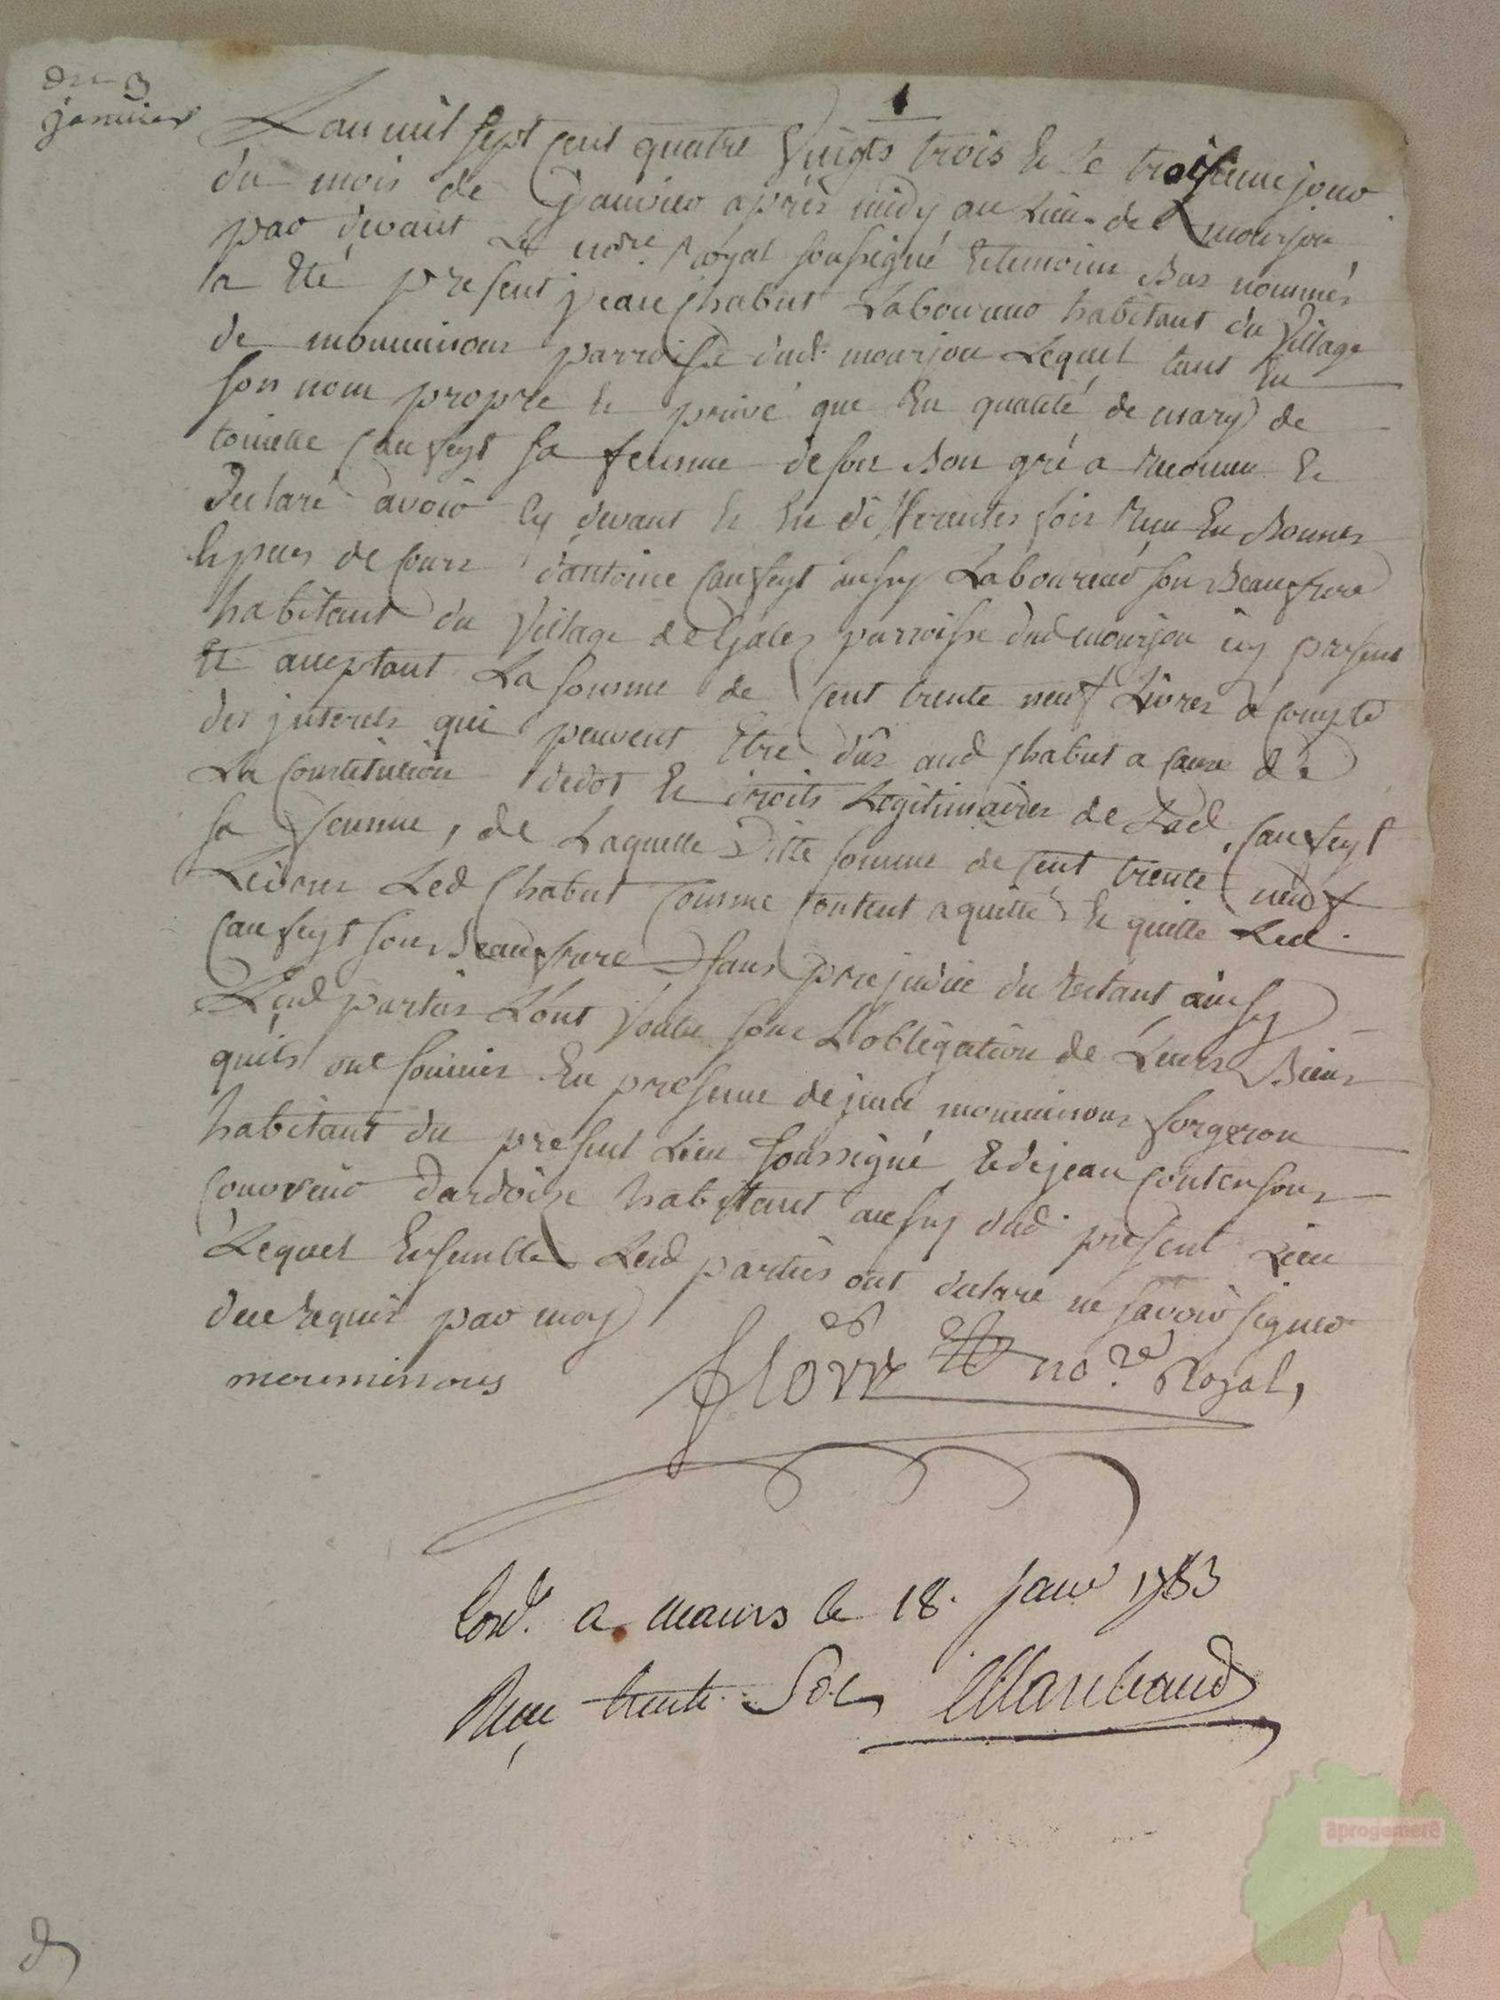 du 3
janvier
1
L'an mil sept cent quatre vingts trois et le troisieme jour
du mois de Janvier après midy au Lieu de mourjou
par devant Le no.re Royal soussigné et temoins Bas nommés
a Eté present jean Chabut Laboureur habitant du Village
de mouminoux parroisse dud. mourjou Lequel tant En
son nom propre et privé que En qualité de mary de
toinette Caufeyt sa femme de son Bon gré a reconnu et
declaré avoir cy devant et En differantes fois reçu En Bonnes
Especes de cours d'antoine Caufeyt aussy Laboureur son Beaufrere
habitant du Village de Gales parroisse dud mourjou icy present
Et acceptant La somme de Cent trente neuf Livres a compte
des jnterets qui peuvent être dûs aud Chabut a cause de
La Constitution de dot et droits Legitimaires de Lad. Caufeyt
sa femme, de Laquelle Ditte somme de Cent trente neuf
Livres Led Chabut Comme Content a quitté et quitte Led.
Caufeyt son Beaufrere sans prejudice du restant ainsy
Lesd parties L'ont Voulu sous L'obligation de Leurs Biens
qu'ils ont soumis En presence de jean mouminoux forgeron
habitant du present Lieu soussigné et de jean Contensoux
Couvreur d'ardoise habitant aussy dud. present Lieu
Lequel Ensemble Lesd parties ont declaré ne savoir signer
de ce requis par moy
mouminoux
no.re Royal,
Con.té a maurs le 18. janv 1783
Reçu trente sols Marchand
aprogemere